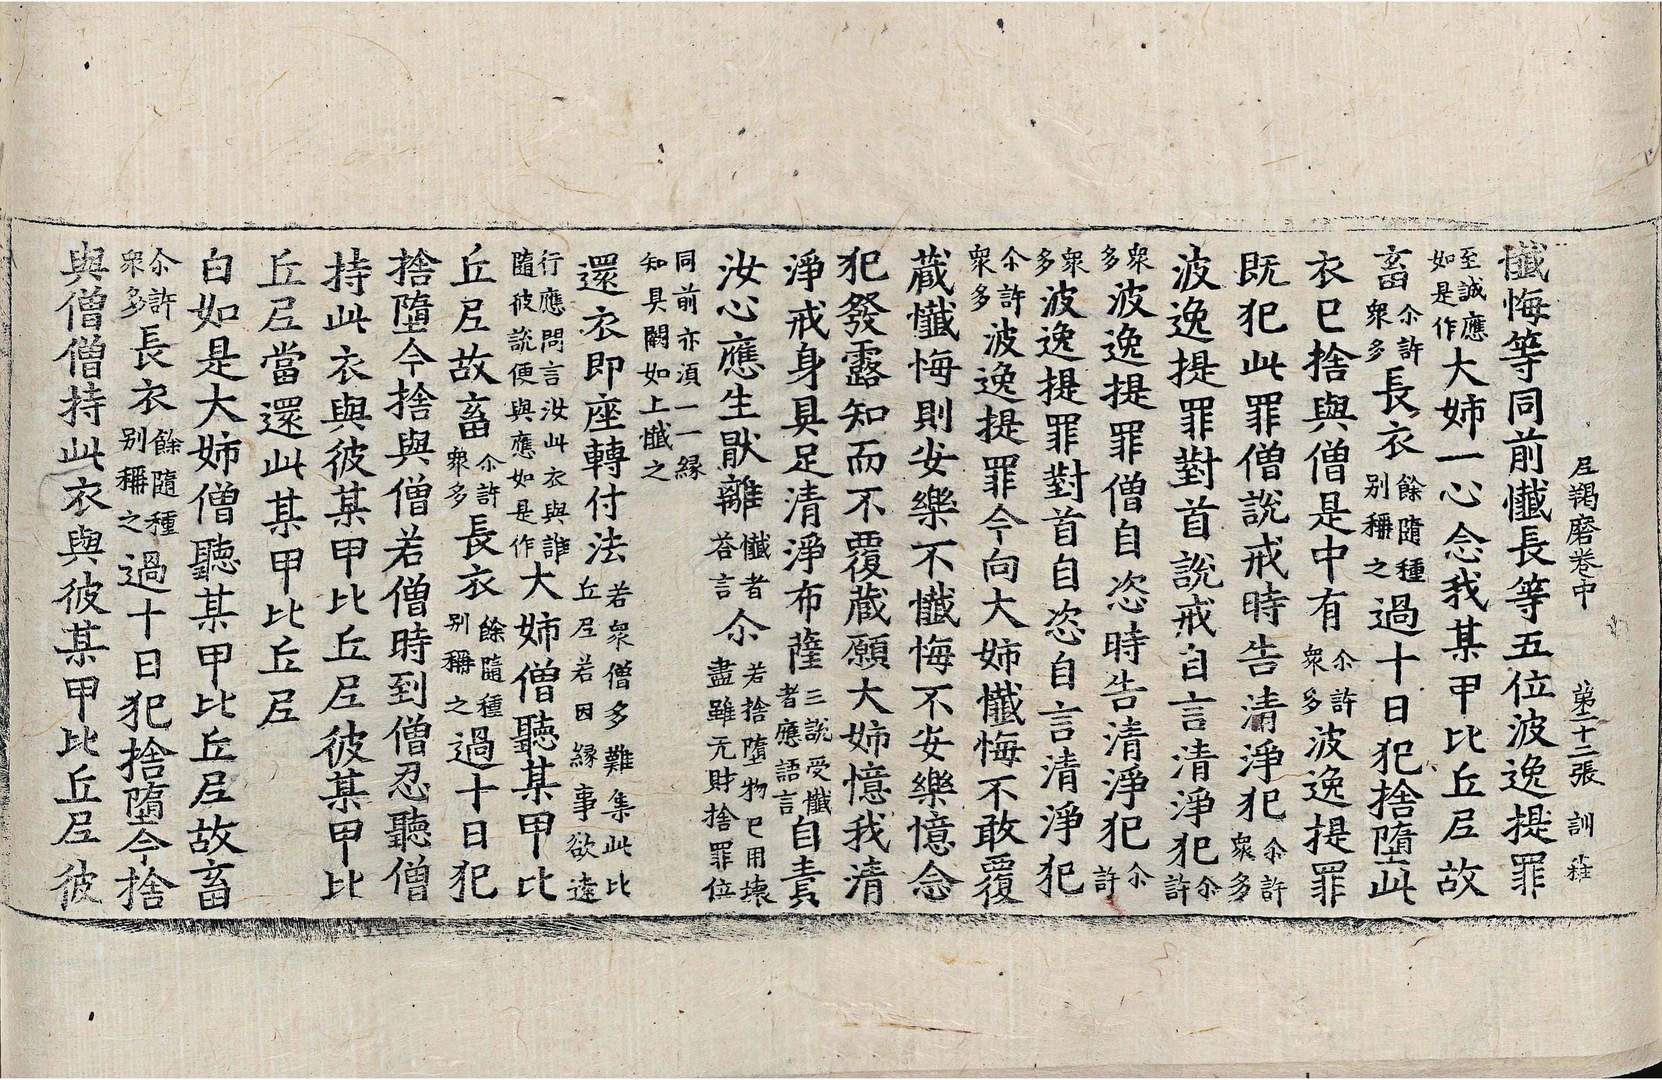 尼羯磨卷中 第二十二張 訓
懺悔等同前懺長等五位波逸提罪
至誠應如是作大姉一心念我某甲比丘尼故
畜尒許衆多長衣餘隨種別稱之過十日犯捨墮此
衣已捨與僧是中有尒許衆多波逸提罪
既犯此罪僧說戒時告清淨犯尒許衆多
波逸提罪對首說戒自言清淨犯尒許
衆多波逸提罪僧自恣時告清淨犯尒許
衆多波逸提罪對首自恣自言清淨犯
尒許衆多波逸提罪今向大姉懺悔不敢覆
藏懺悔則安樂不懺悔不安樂憶念
犯發露知而不覆藏願大姉憶我清
淨戒身具足清淨布薩三說受懺者應語言自責
汝心應生猒離懺者荅言尒若捨墮物已用壞盡雖无財捨罪位
同前亦湏一一緣知具闕如上懺之
還衣即座轉付法若衆僧多難集此比丘尼若因緣事欲遠
行應問言汝此衣與誰隨彼說便與應如是作大姉僧聽某甲比
丘尼故畜尒許衆多長衣餘隨種別稱之過十日犯
捨墮今捨與僧若僧時到僧忍聽僧
持此衣與彼某甲比丘尼彼某甲比
丘尼當還此某甲比丘尼
白如是大姉僧聽某甲比丘尼故畜
尒許衆多長衣餘隨種別稱之過十日犯捨墮今捨
與僧僧持此衣與彼某甲比丘尼彼